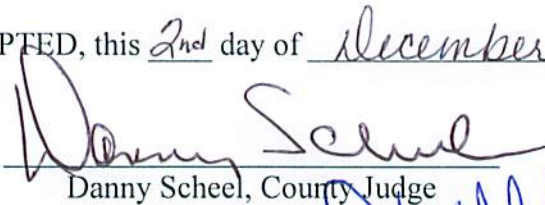 PTED, this 2nd day of December
Danny Scheel
Danny Scheel, County Judge